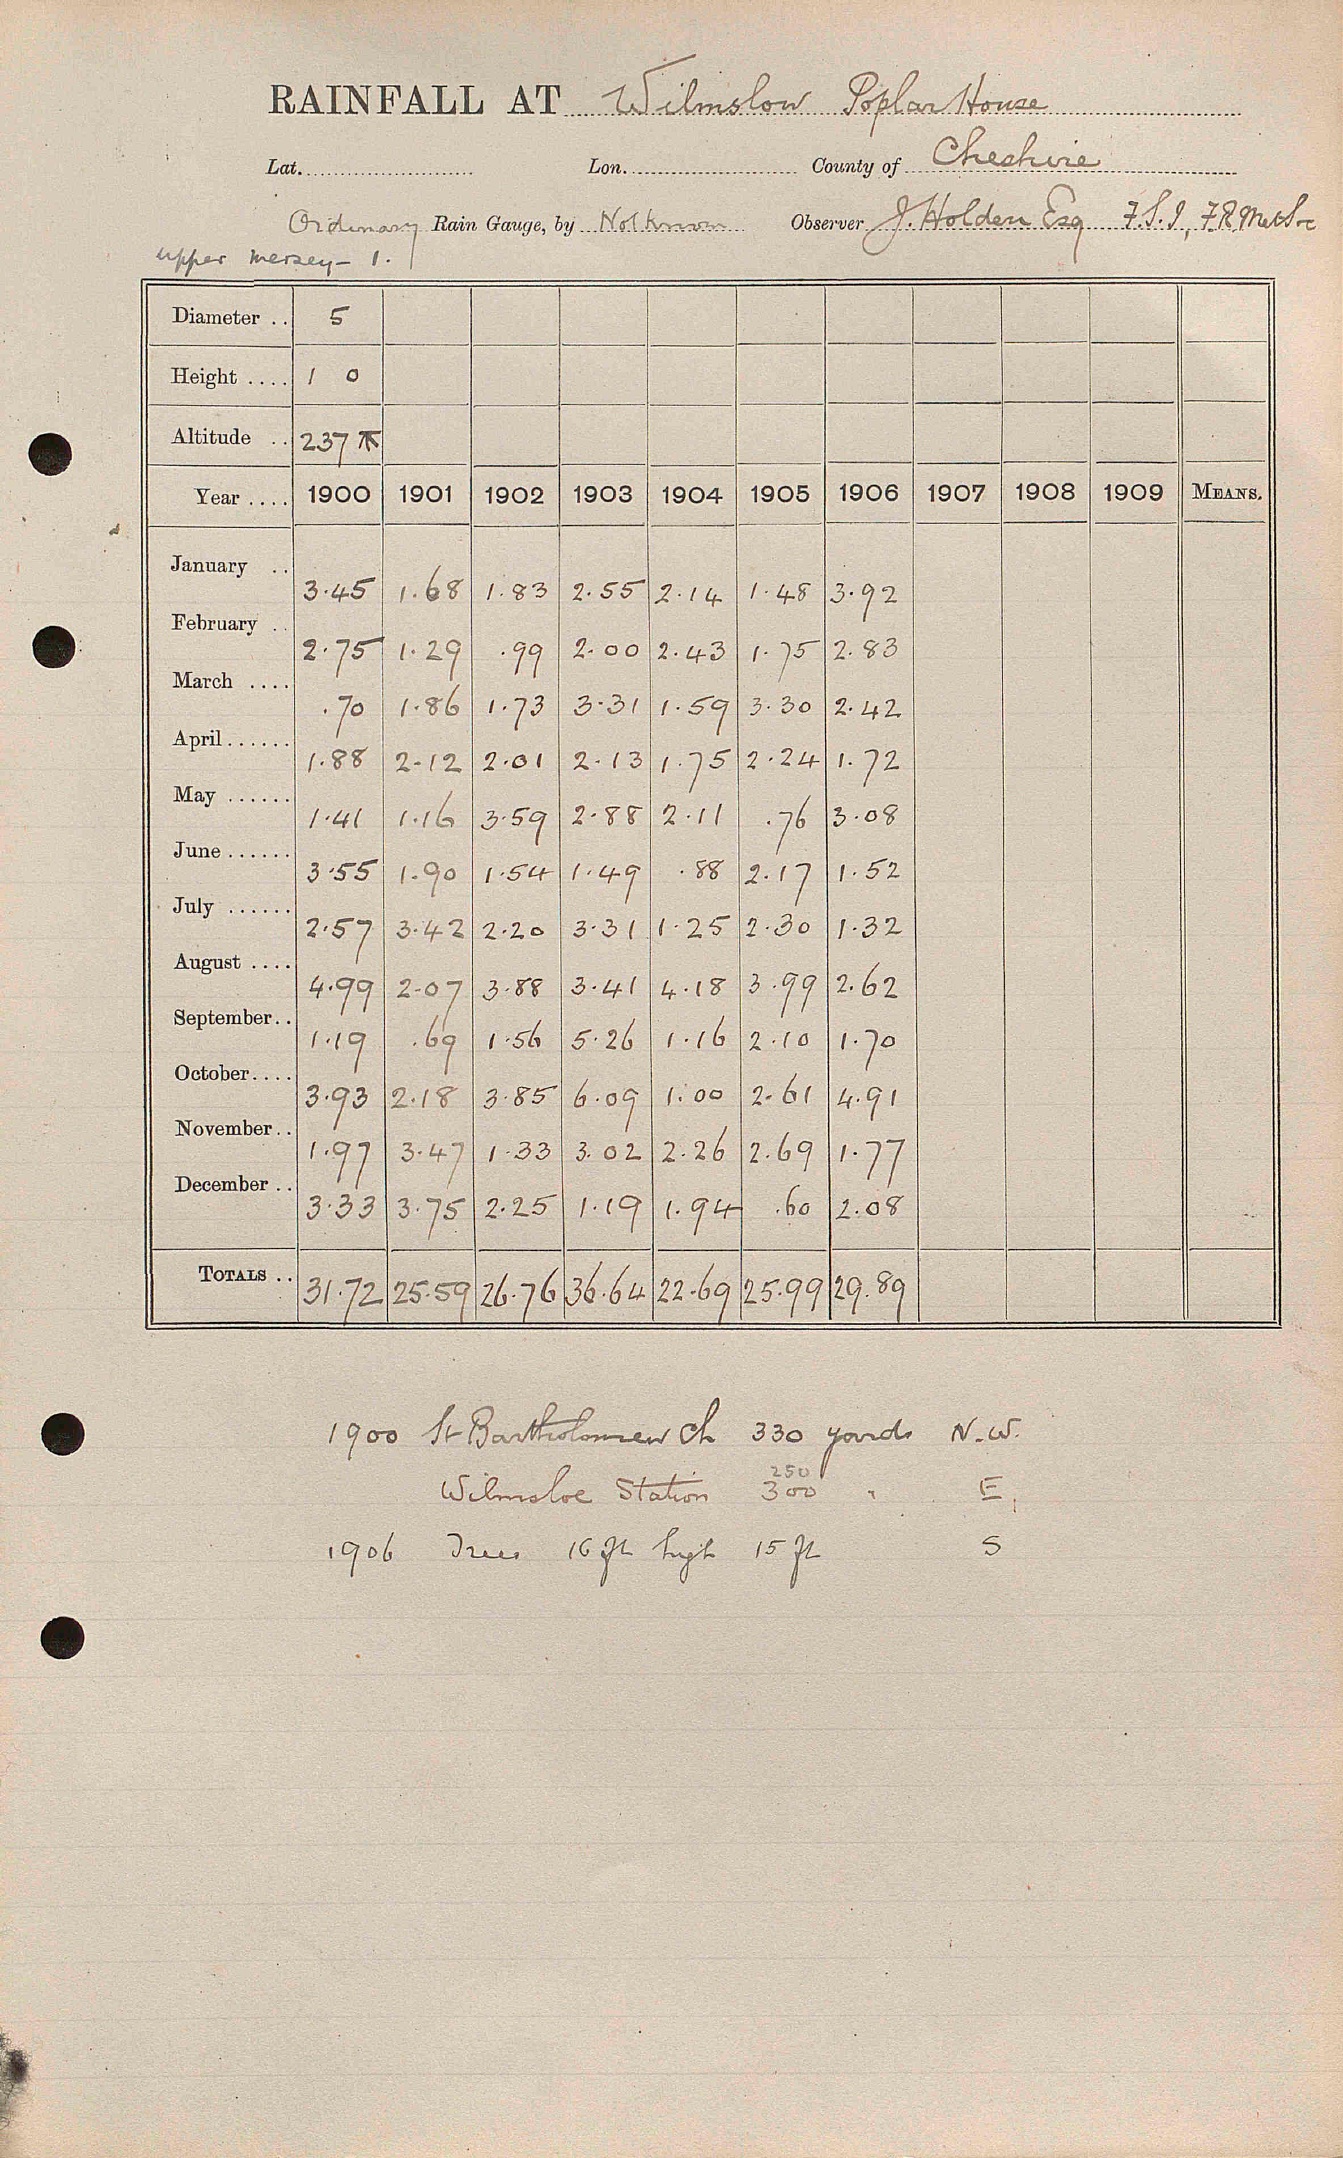 RAINFALL AT Wilmslow Poplar House
Lat. Lon. County of Cheshire
Ordinary Rain Gauge, by Not known Observer J. Holden Esq F.S.I, F.R.Met Soc
upper mersey - 1.
Diameter .. 5
Height .... 1 0
Altitude .. 237
Year .... 1900 1901 1902 1903 1904 1905 1906 1907 1908 1909 MEANS.
January .. 3.45 1.68 1.83 2.55 2.14 1.48 3.92
February .. 2.75 1.29 .99 2.00 2.43 1.75 2.83
March .... .70 1.86 1.73 3.31 1.59 3.30 2.42
April ...... 1.88 2.12 2.01 2.13 1.75 2.24 1.72
May ...... 1.41 1.16 3.59 2.88 2.11 .76 3.08
June ...... 3.55 1.90 1.54 1.49 .88 2.17 1.52
July ...... 2.57 3.42 2.20 3.31 1.25 2.30 1.32
August .... 4.99 2.07 3.88 3.41 4.18 3.99 2.62
September.. 1.19 .69 1.56 5.26 1.16 2.10 1.70
October.... 3.93 2.18 3.85 6.09 1.00 2.61 4.91
November.. 1.97 3.47 1.33 3.02 2.26 2.69 1.77
December .. 3.33 3.75 2.25 1.19 1.94 .60 2.08
TOTALS .. 31.72 25.59 26.76 36.64 22.69 25.99 29.89
1900 St Bartholomew Ch 330 yards N.W.
250
Wilmsloe Station 300 " E.
1906 Trees 16 ft high 15 ft S